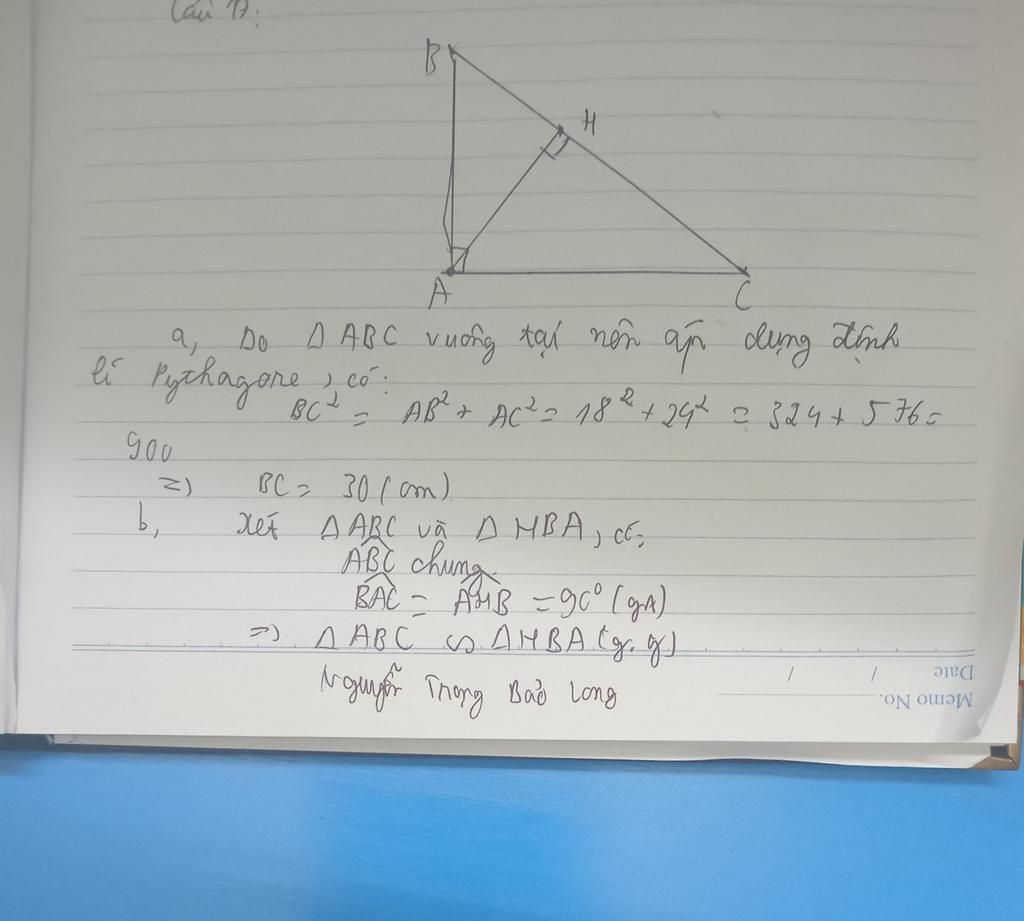 Câu 17:
B
H
A
C
a, Do Δ ABC vuông tại nên áp dụng định
lí Pythagore, có:
BC² = AB² + AC² = 18² + 24² = 324 + 576 =
900
=> BC = 30 (cm)
b, Xét Δ ABC và Δ HBA, có:
ABC chung
BAC = AHB = 90° (gt)
=> Δ ABC ∽ Δ HBA (g.g)
Nguyễn Trọng Bảo Long
Memo No.
Date / /